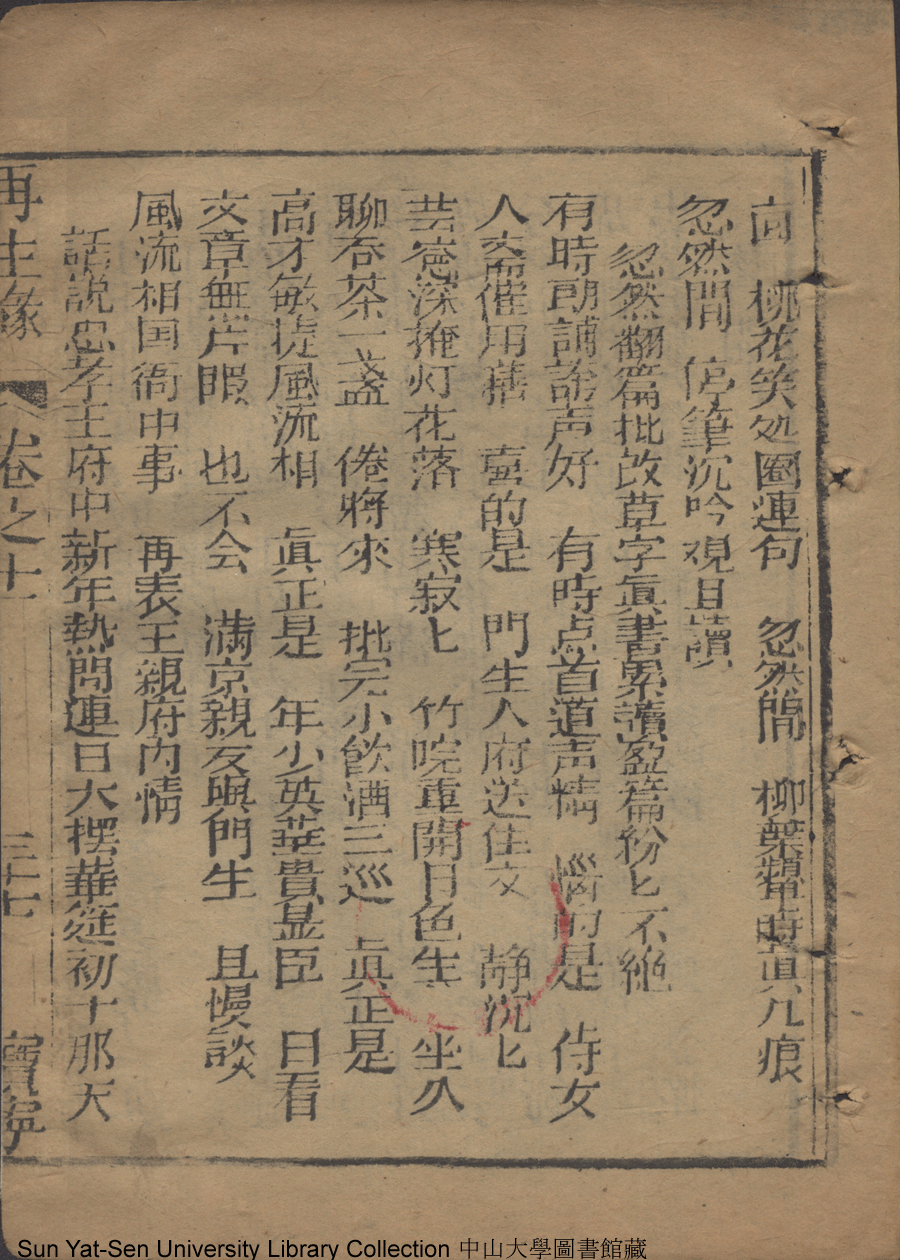 向　桃花笑処圈連句　忽然間　柳葉顰時直几痕
忽然間　停筆沉吟観且讀
忽然翻篇批改草字眞書累牘盈篇紛匕不絶
有時朗誦説声好　有時点首道声精　惱的是　侍女
人斋催用膳　喜的是　門生人府送佳文　静沉匕
芸窓深掩灯花落　寒寂匕　竹院重開日色生　坐久
聊吞茶一盏　倦將來　批完小飮酒三巡　眞正是
高才敏捷風流相　眞正是　年少英華貴显臣　日看
文章無片暇　也不会　満京親友與門生　且慢談
風流相国衙中事　再表王親府内情
話説忠孝王府中新年熱閙連日大摆華筵初十那天
再生縁　卷之十　三十七　寶寧
Sun Yat-Sen University Library Collection 中山大學圖書館藏